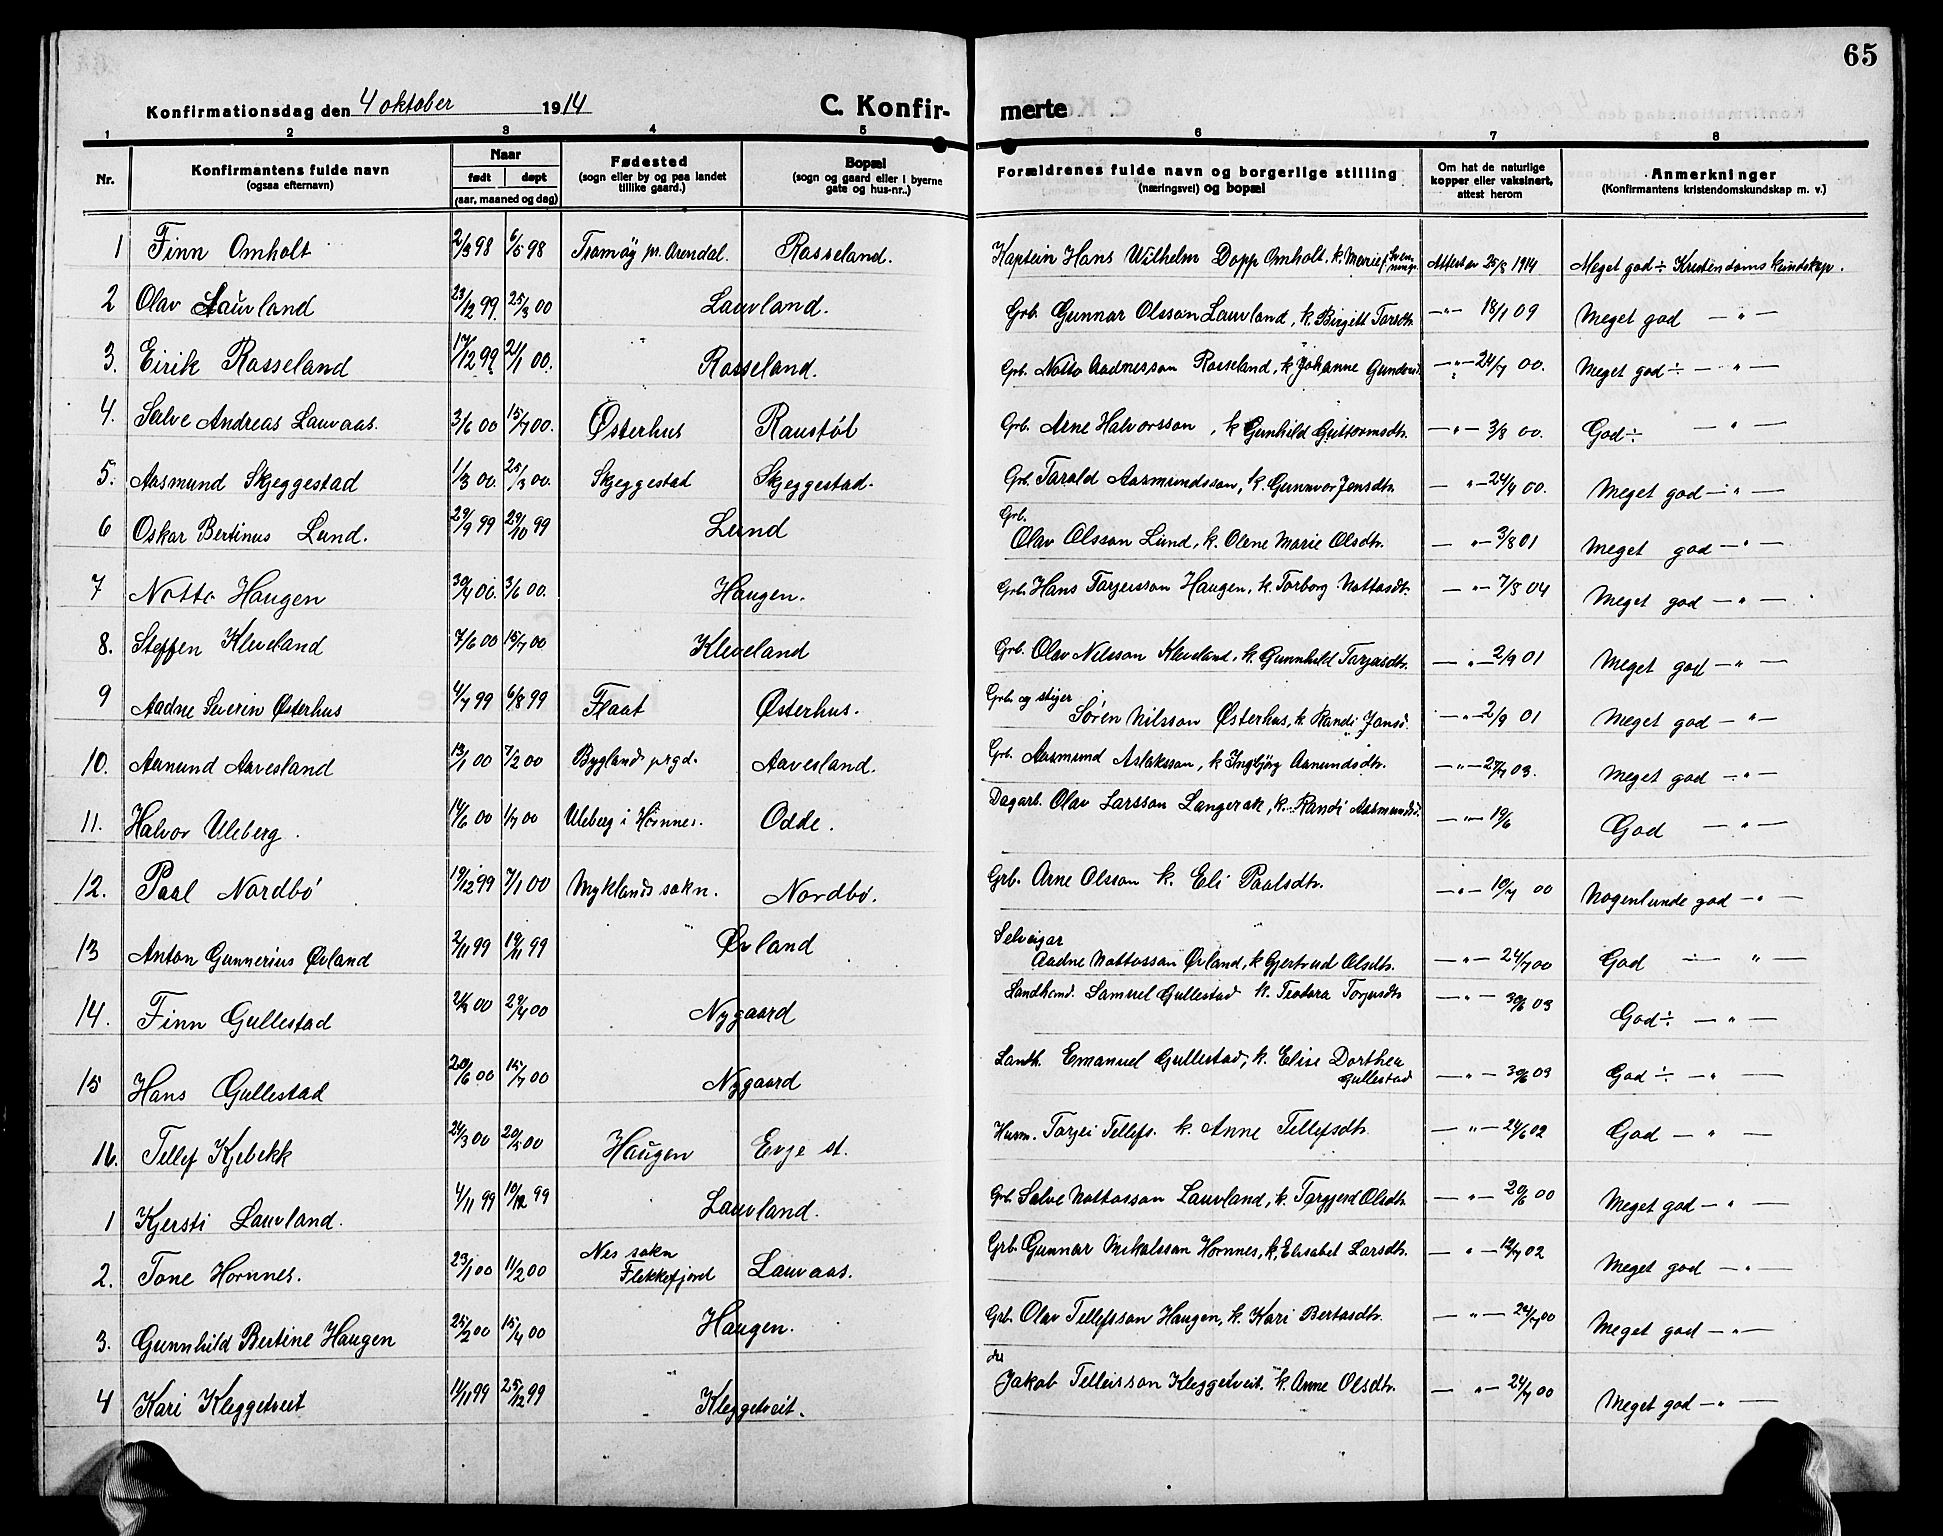 65
Konfirmationsdag den 4 oktober 1914 C. Konfir- merte
1 2 3 4 5 6 7 8
Nr. Konfirmantens fulde navn (ogsaa efternavn) Naar født døpt (aar, maaned og dag) Fødested (sogn eller by og paa landet tillike gaard.) Bopæl (sogn og gaard eller i byerne gate og hus-nr..) Forældrenes fulde navn og borgerlige stilling (næringsvei) og bopæl Om hat de naturlige kopper eller vaksinert, attest herom Anmerkninger (Konfirmantens kristendomskundskap m. v.)
1 Finn Omholt 2/3 98 6/5 98 Tromøy pr. Arendal. Rosseland. Kaptein Hans Wilhelm Dopp Omholt. k. Marie Attest av 25/8 1914 Meget god ÷ Kristendomskundskap.
2 Olav Lauvland 23/12 99. 25/3 00 Lauvland. Grb. Gunnar Olsson Lauvland, k. Birgitt Tarsdtr. —"— 18/1 09 Meget god — " —
3. Eirik Rosseland 17/12 99 21/1 00. Rosseland. Grb. Notto Aadnesson Rosseland, k Johanne —"— 24/7 00. Meget god ÷ — " —
4. Salve Andreas Lauvaas. 3/6 00 15/7 00. Østerhus Raustøl Grb. Arne Halvorsson, k Gunhild Guttormsdtr. — " — 3/8 00. God ÷ — " —
5. Aasmund Skjeggestad 1/3 00. 25/3 00. Skjeggestad Skjeggestad. Grb. Tarald Aasmundsson, k. Gunnvor Jensdtr. — " — 24/4 00. Meget god — " —
6 Oskar Bertinus Lund. 29/9 99 29/10 99 Lund Grb. Olav Olsson Lund, k. Olene Marie Olsdtr. — " — 3/8 01 Meget god — " —
7 Notto Haugen 30/4 00. 3/6 00. Haugen. Grb. Hans Tarjeisson Haugen, k. Torborg Nottosdtr. — " — 7/8 04 Meget god — " —
8. Steffen Kleveland 7/6 00 15/7 00 Kleveland Grb. Olav Nilsson Kleveland, k. Gunnhild Tarjeisdtr. — " — 2/9 01 Meget god — " —
9 Aadne Severin Østerhus 4/7 99 6/8 99 Flaat Østerhus. Grb. og stiger Søren Nilsson Østerhus, k Randi Jonsd. — " — 2/9 01 Meget god — " —
10. Aanund Aavesland 13/1 00 7/2 00 Bygland prgd. Aavesland. Grb. Aasmund Aslaksson, k Ingbjørg Aanundsdtr. — " — 27/7 03. Meget god — " —
11. Halvor Uleberg. 14/6 00 1/7 00 Uleberg i Hornnes. Odde. Dagarb. Olav Larsson Langerak, k. Randi Aasmundsd. — " — 19/6 God — " —
12. Paal Nordbø 19/12 99 7/1 00 Myklands sokn. Nordbø. Grb. Arne Olsson k. Eli Paalsdtr. — " — 10/7 00 Nogenlunde god — " —
13 Anton Gunnerius Øvland 2/11 99 19/11 99 Øvland Selveigar Aadne Nottosson Øvland, k Gjertrud Olsdtr. — " — 24/7 00 God ÷ " —
14. Finn Gullestad 00 29/4 00 Nygaard Landhand. Samuel Gullestad k. Teodora Torjusdtr — " — 30/6 03 God ÷ — " —
15 Hans Gullestad 20/6 00 15/7 00 Nygaard Landh. Emanuel Gullestad, k. Elise Dorthea Gullestad — " — 30/6 09 God ÷ — " —
16. Tellef Kjebekk 24/3 00 20/5 00 Haugen Evje st. Husm. Torjei Tellefs. k. Anne Tellefsdtr. — " — 24/6 02 God — " —
1 Kjersti Lauvland. 4/11 99 10/12 99 Lauvland. Grb. Salve Nottosson Lauvland, k. Targjerd Olsdtr. — " — 20/6 00 Meget god — " —
2. Tone Hornnes. 23/1 00 11/2 00 Nes sokn Flekkefjord Lauvaas. Grb. Gunnar Mikalsson Hornnes, k. Elisabet Larsdtr. — " — 12/7 02 Meget god — " —
3. Gunnhild Bertine Haugen 25/2 00 15/4 00 Haugen. Grb. Olav Tellefsson Haugen, k. Kari Bertosdtr. — " — 24/7 00 Meget god — " —
4 Kari Kleggetveit 11/11 99 25/12 99 Kleggetveit. do Jakob Telleisson Kleggetveit. k. Anne Olsdtr. — " — 24/7 00 Meget god — " —